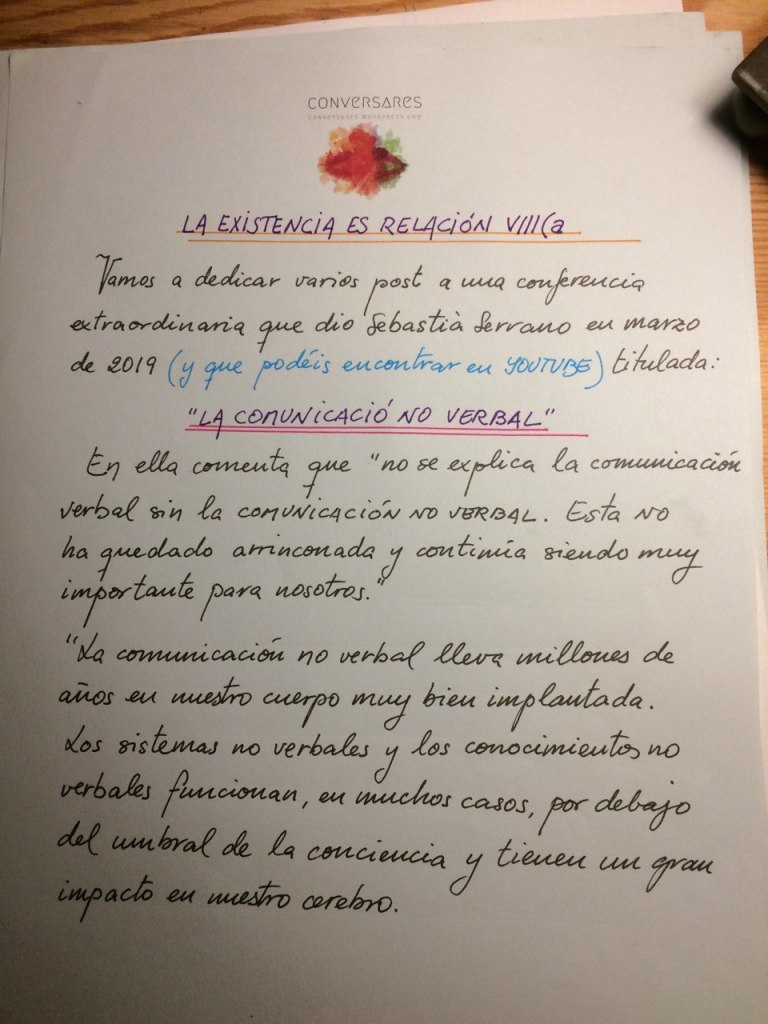 CONVERSARES
CONVERSARES.WORDPRESS.COM
LA EXISTENCIA ES RELACIÓN VIII(a
Vamos a dedicar varios post a una conferencia
extraordinaria que dio Sebastià Serrano en marzo
de 2019 (y que podéis encontrar en YOUTUBE) titulada:
"LA COMUNICACIÓ NO VERBAL"
En ella comenta que "no se explica la comunicación
verbal sin la COMUNICACIÓN NO VERBAL. Esta NO
ha quedado arrinconada y continúa siendo muy
importante para nosotros."
"La comunicación no verbal lleva millones de
años en nuestro cuerpo muy bien implantada.
Los sistemas no verbales y los conocimientos no
verbales funcionan, en muchos casos, por debajo
del umbral de la conciencia y tienen un gran
impacto en nuestro cerebro.